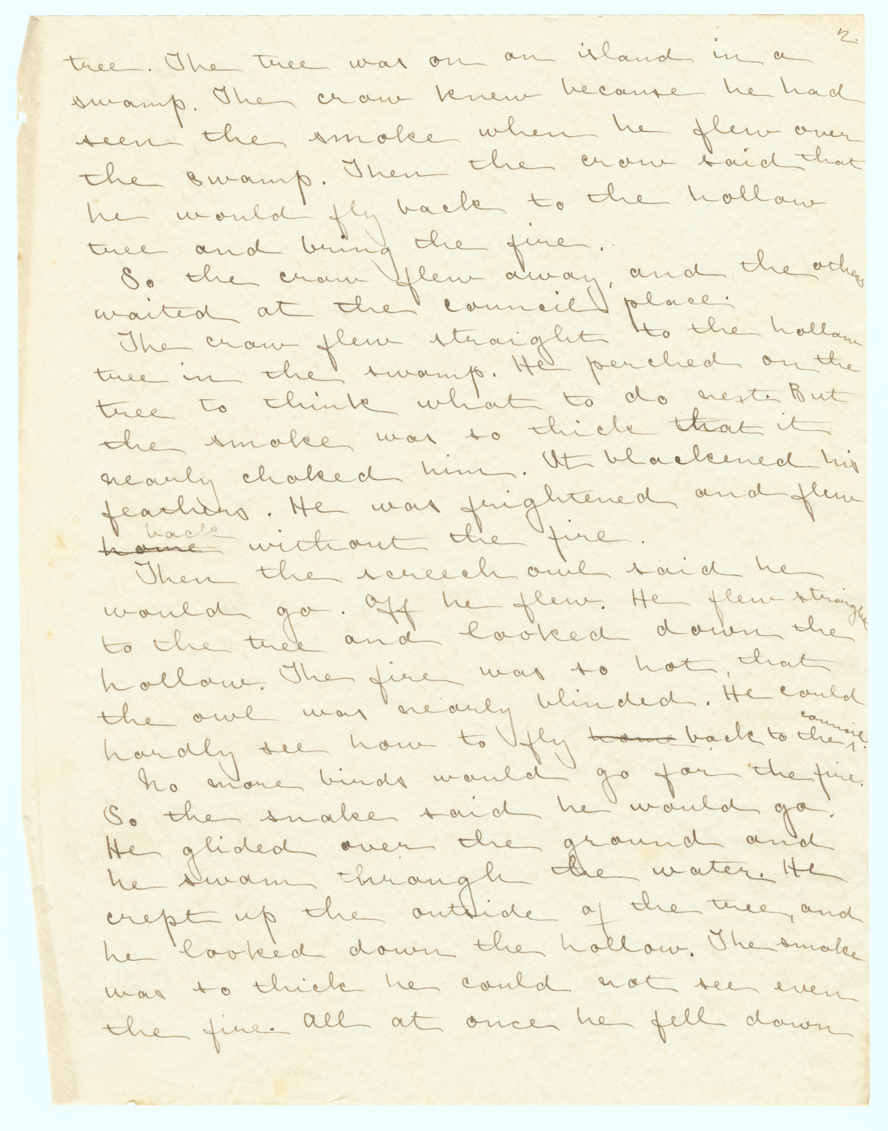 2.
tree. The tree was on an island in a
swamp. The crow knew because he had
seen the smoke when he flew over
the swamp. Then the crow said that
he would fly back to the hollow
tree and bring the fire.
So the crow flew away, and the others
waited at the council place.
The crow flew straight to the hollow
tree in the swamp. He perched on the
tree to think what to do next. But
the smoke was so thick that it
nearly choked him. It blackened his
feathers. He was frightened and flew
back
home without the fire.
Then the screech owl said he
would go. Off he flew. He flew straight
to the tree and looked down the
hollow. The fire was so hot, that
the owl was nearly blinded. He could
council
hardly see how to fly home back to the.
No more birds would go for the fire.
So the snake said he would go.
He glided over the ground and
he swam through the water. He
crept up the outside of the tree, and
he looked down the hollow. The smoke
was so thick he could not see even
the fire. All at once he fell down